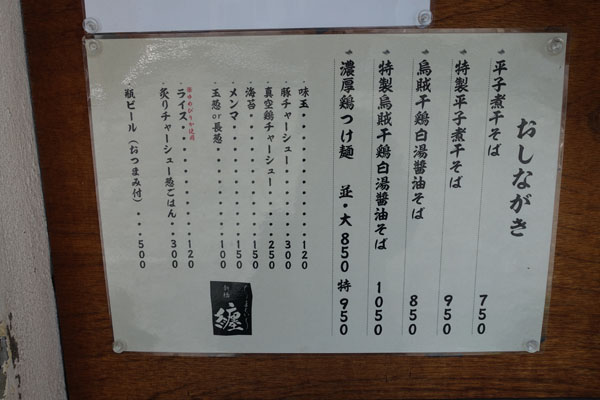 おしながき
平子煮干そば 750
特製平子煮干そば 950
烏賊干鶏白湯醤油そば 850
特製烏賊干鶏白湯醤油そば 1050
濃厚鶏つけ麺 並・大850 特950
味玉・・・・・・120
豚チャーシュー・・・300
真空鶏チャーシュー・・・250
海苔・・・・・・150
メンマ・・・・・・150
玉葱or長葱・・・・100
ライス・・・・・・120
炙りチャーシュー葱ごはん・・300
瓶ビール(おつまみ付)・・・500
纏